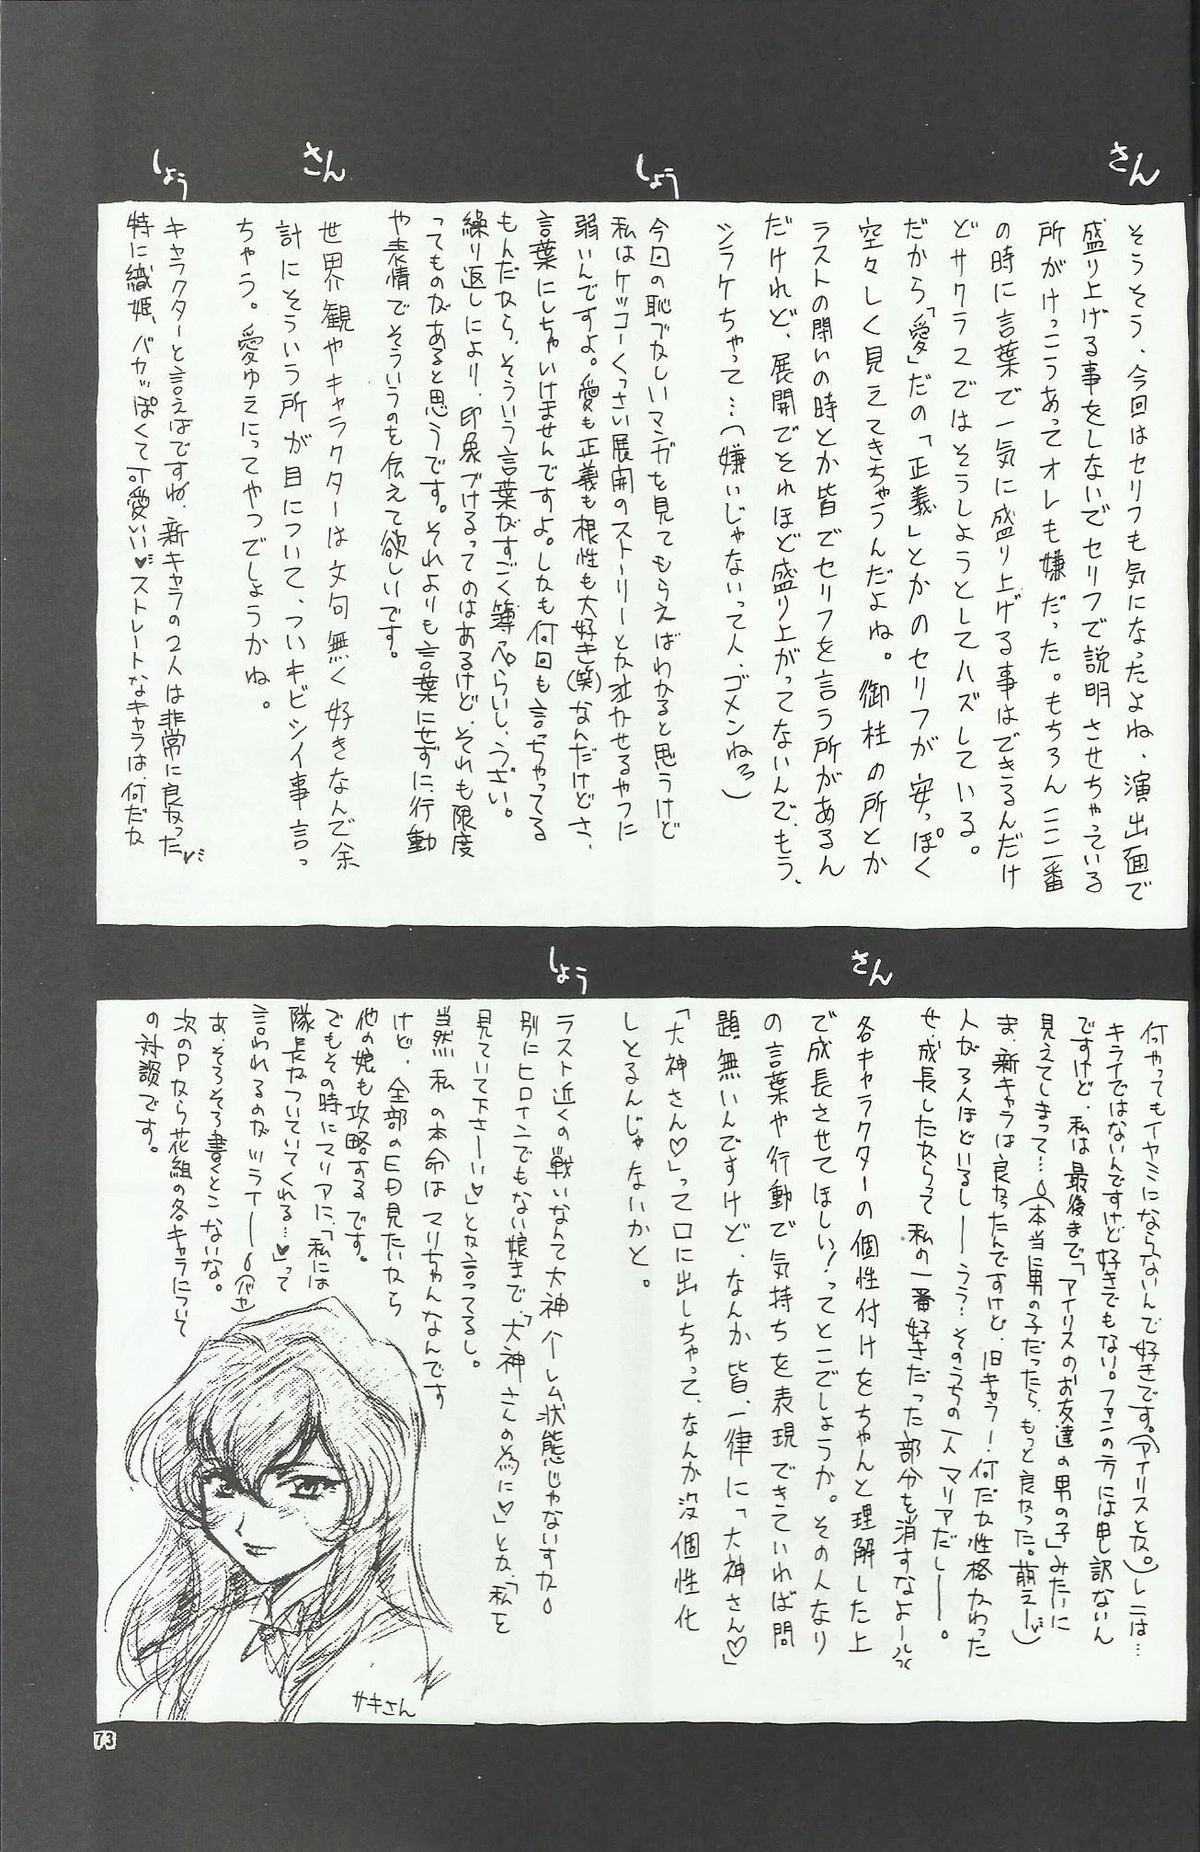 さん
そうそう、今回はセリフも気になったよね、演出面で
盛り上げる事をしないでセリフで説明させちゃっている
所がけっこうあってオレも嫌だった。もちろんここ一番
の時に言葉で一気に盛り上げる事はできるんだけ
どサクラ2ではそうしようとしてハズしている。
だから「愛」だの「正義」とかのセリフが安っぽく
空々しく見えてきちゃうんだよね。御柱の所とか
ラストの闘いの時とか皆でセリフを言う所があるん
だけれど、展開でそれほど盛り上がってないんで、もう、
シラケちゃって…(嫌いじゃないって人、ゴメンねろ)
しょう
今回の恥ずかしいマンガを見てもらえばわかると思うけど
私はケッコーくっさい展開のストーリーとか泣かせるやつに
弱いんですよ。愛も正義も根性も大好き(笑)なんだけどさ、
言葉にしちゃいけませんですよ。しかも何回も言っちゃってる
もんだから、そういう言葉がすごく薄っぺらいし、うざい。
繰り返しにより、印象づけるってのはあるけど、それも限度
ってものがあると思うです。それよりも言葉にせずに、行動
や表情でそういうのを伝えて欲しいです。
さん
世界観やキャラクターは文句無く好きなんで余
計にそういう所が目について、ついキビシイ事言っ
ちゃう。愛ゆえにってやつでしょうかね。
しょう
キャラクターと言えばですね、新キャラの2人は非常に良かった
特に織姫、バカッぽくて可愛い♥ストレートなキャラは、何だか
何やってもイヤミにならないんで好きです。(アイリスとか。)レニは…
キライではないんですけど好きでもない。ファンの方には申し訳ないん
ですけど、私は最後まで「アイリスのお友達の男の子」みたいに
見えてしまって…(本当に男の子だったら、もっと良かった。萌えー)
ま、新キャラは良かったんですけど、旧キャラー。何だか性格かわった
人が3人ほどいるし――うう…そのうちの一人マリアだし――。
せ、成長したからって私の一番好きだった部分を消すなよーっっ
さん
各キャラクターの個性付けをちゃんと理解した上
で成長させてほしい!ってとこでしょうか。その人なり
の言葉や行動で気持ちを表現できていれば問
題無いんですけど、なんか皆、一律に「大神さん♡」
「大神さん♡」って口に出しちゃって、なんか没個性化
しとるんじゃないかと。
しょう
ラスト近くの戦いなんて大神ハーレム状態じゃないすか
別にヒロインでもない娘まで、「大神さんの為に♡」とか、「私を
見ていて下さーい♡」とか言ってるし。
当然私の本命はマリちゃんなんです
けど、全部のED見たいから
他の娘も攻略するです。
でもその時にマリアに、「私には
隊長がついていてくれる…♥」って
言われるのがツライ――(バカ)
あ、そろそろ書くとこないな。
次のPから花組の各キャラについて
の対談です。
サキさん
73